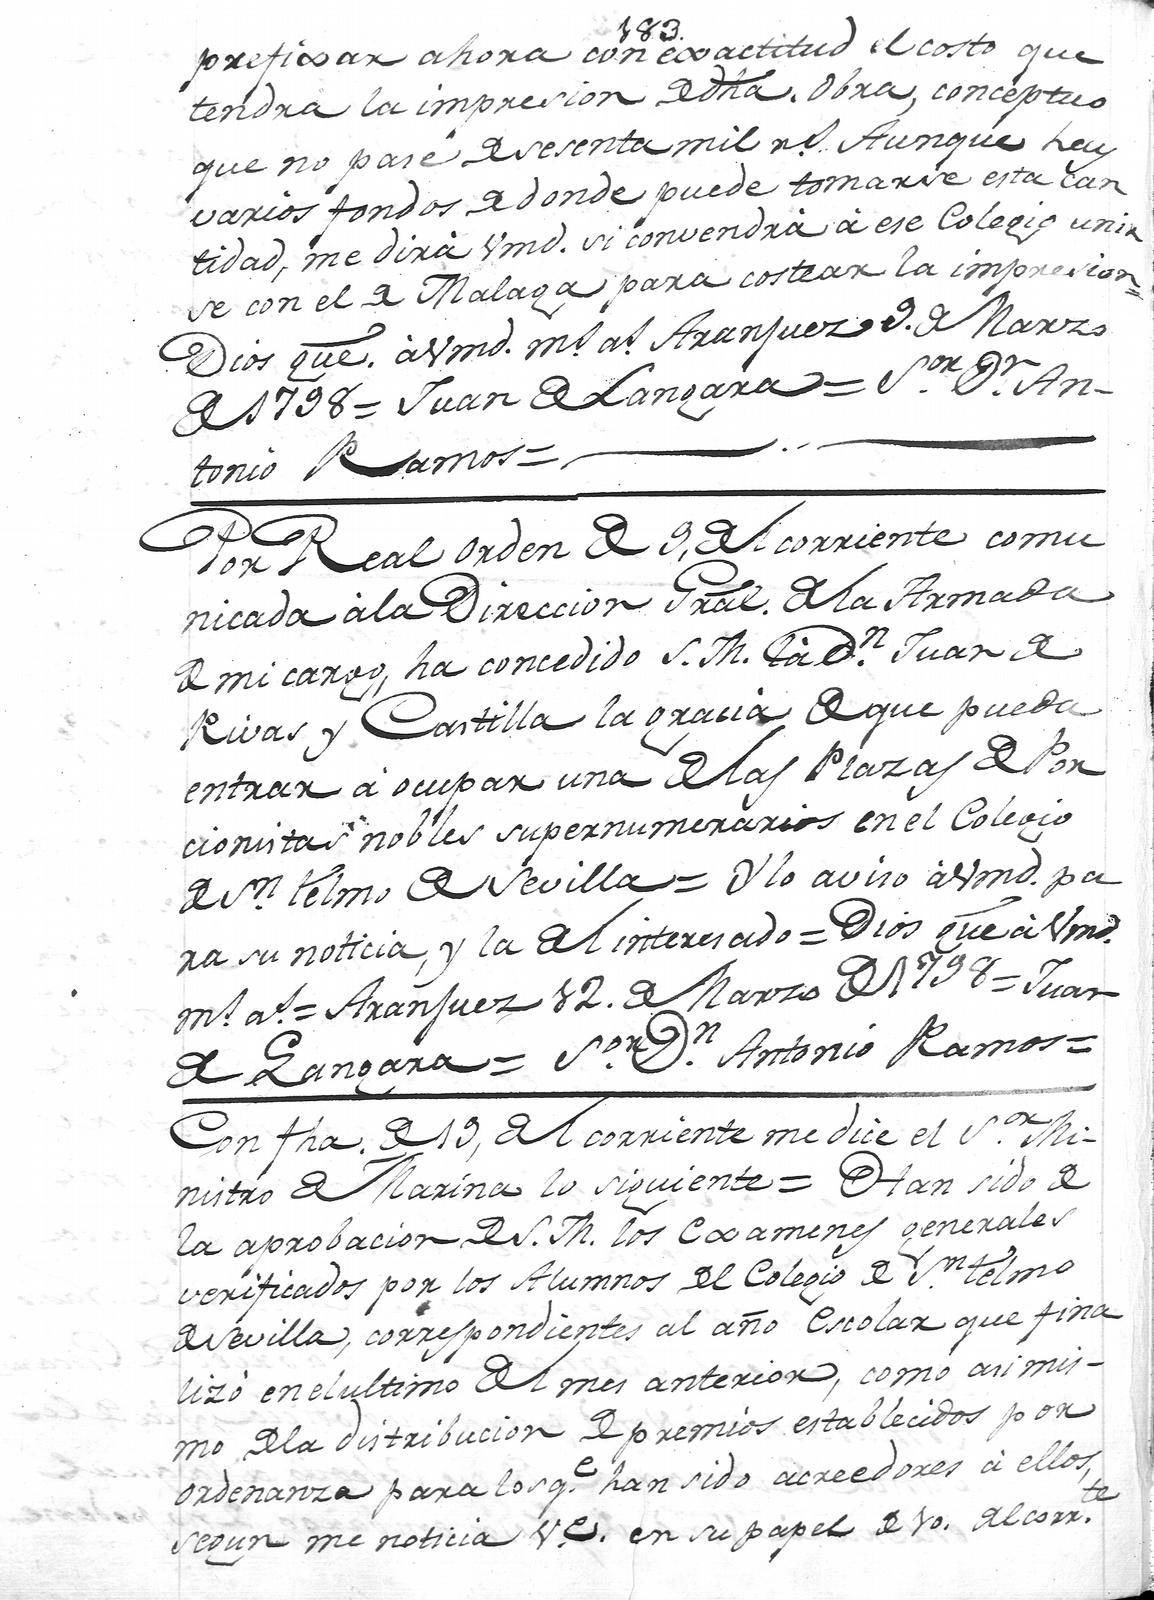 183.
prefixar ahora con exactitud el costo que
tendra la impresion de dha. Obra, conceptuo
que no pase de sesenta mil rs. Aunque hay
varios fondos de donde puede tomarse esta can
tidad, me dirá Vmd. si convendrá á ese Colegio unir
se con el de Malaga para costear la impresion=
Dios gue. á Vmd. ms. as. Aranjuez 9. de Marzo
de 1798= Juan de Langara= Sor. Dn. An-
tonio Ramos=
Por Real orden de 9, del corriente comu
nicada á la Direccion Gral. de la Armada
de mi cargo, ha concedido S. M. á Dn. Juan de
Rivas y Castilla la gracia de que pueda
entrar á ocupar una de las Plazas de Por
cionistas nobles supernumerarios en el Colegio
de Sn. telmo de Sevilla= Ylo aviso á Vmd. pa
ra su noticia, y la del interesado= Dios gue á Vmd.
ms. as.= Aranjuez 12. de Marzo de 1798= Juan
de Langara= Sor. Dn. Antonio Ramos=
Con fha. de 19, del corriente me dice el Sor. Mi-
nistro de Marina lo siguiente= Han sido de
la aprobacion de S. M. los Examenes generales
verificados por los Alumnos del Colegio de Sn. telmo
de Sevilla, correspondientes al año escolar que fina
lizó en el ultimo del mes anterior, como asi mis-
mo de la distribucion de premios establecidos por
ordenanza para los qe. han sido acreedores á ellos,
segun me noticia Ve. en su papel de 10. del corrte.